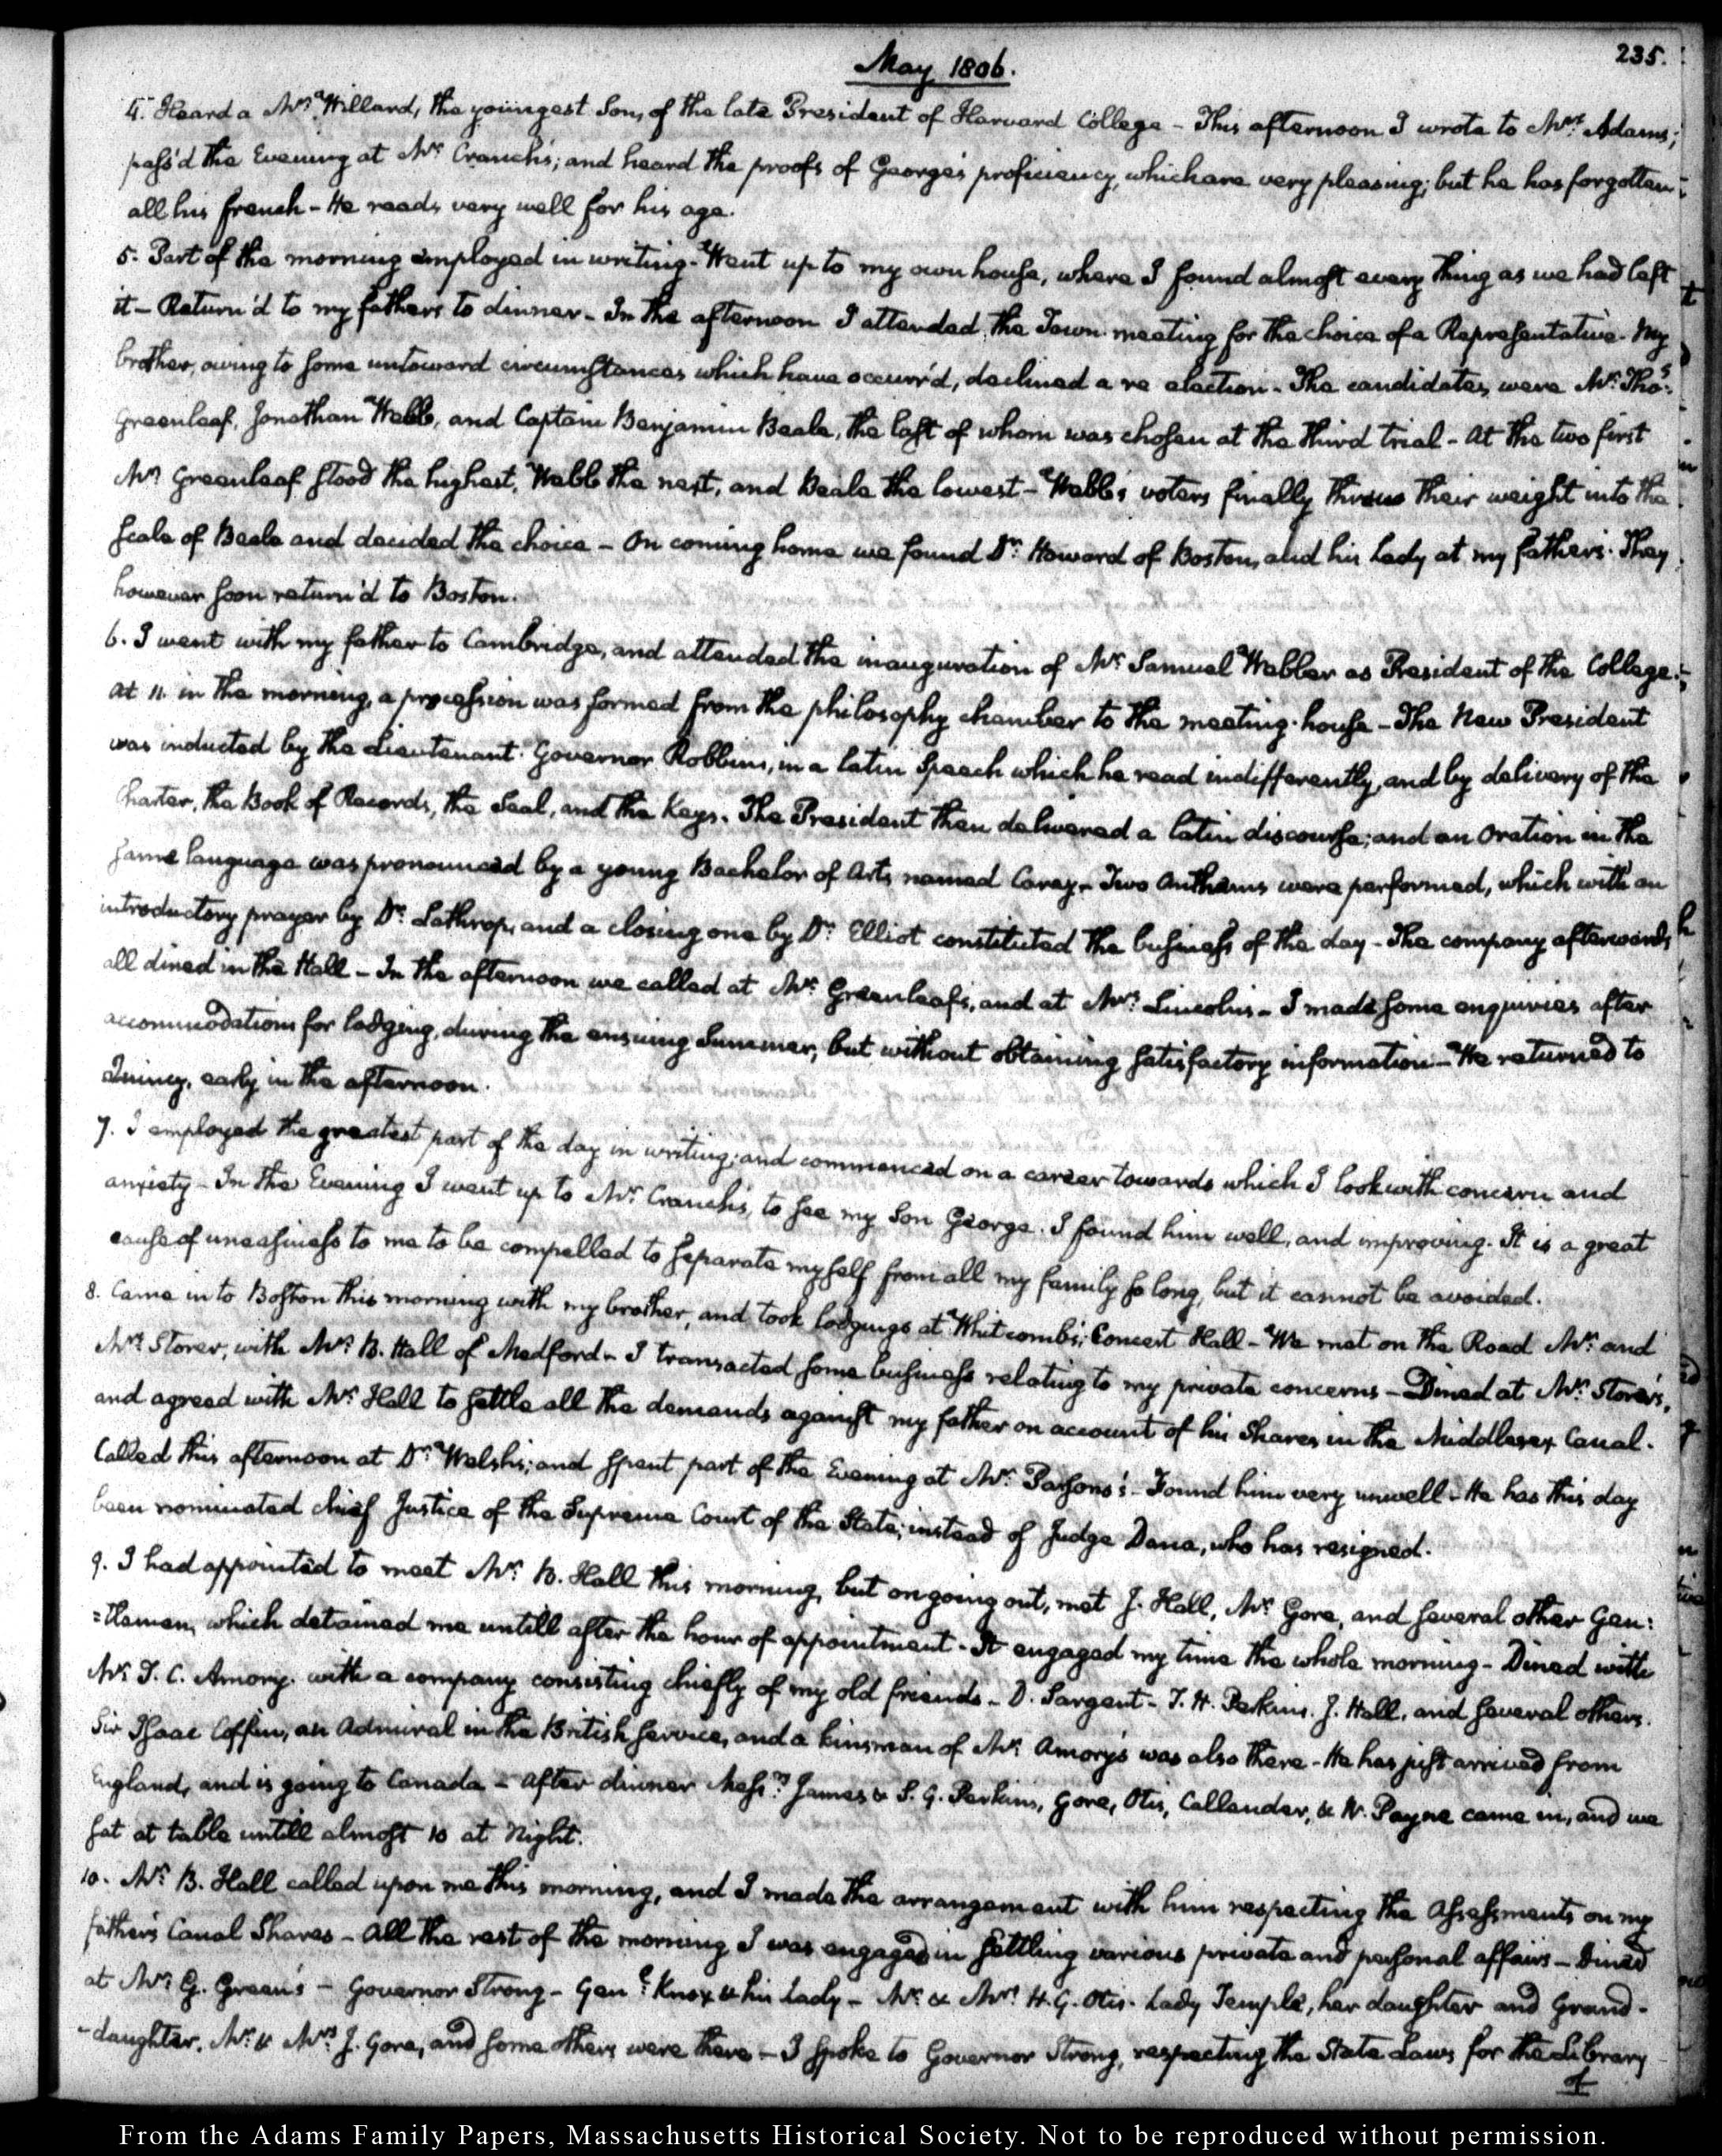 235.
May 1806.
4. Heard a Mr. Willard, the youngest Son, of the late President of Harvard College - This afternoon I wrote to Mrs. Adams;
pass'd the Evening at Mr. Cranch's; and heard the proofs of George's proficiency, which are very pleasing; but he has forgotten
all his french - He reads very well for his age.
5. Part of the morning employed in writing - Went up to my own house, where I found almost every thing as we had left
it - Return'd to my fathers to dinner - In the afternoon I attended the Town-meeting for the choice of a Representative. My
brother, owing to some untoward circumstances which have occurr'd, declined a re election - The candidates were Mr. Thos:
Greenleaf, Jonathan Webb, and Captain Benjamin Beale, the last of whom was chosen at the third trial - At the two first
Mr. Greenleaf stood the highest, Webb the next, and Beale the lowest - Webb's voters finally threw their weight into the
scale of Beale and decided the choice - On coming home we found Dr. Howard of Boston, and his Lady at my fathers. They
however soon return'd to Boston.
6. I went with my father to Cambridge, and attended the inauguration of Mr. Samuel Webber as President of the College.
At 11. in the morning, a procession was formed from the philosophy chamber to the meeting-house - The New President
was inducted by the Lieutenant-Governor Robbins, in a latin speech which he read indifferently, and by delivery of the
Charter, the Book of Records, the Seal, and the Keys. The President then delivered a latin discourse; and an Oration in the
same language was pronounced by a young Bachelor of Arts, named Carey - Two Anthems were performed, which with an
introductory prayer by Dr. Lathrop, and a closing one by Dr. Elliot constituted the business of the day - The company afterwards
all dined in the Hall - In the afternoon we called at Mr. Greenleaf's, and at Mrs. Lincoln's - I made some enquiries after
accommodations for lodging, during the ensuing Summer, but without obtaining satisfactory information - We returned to
Quincy, early in the afternoon.
7. I employed the greatest part of the day in writing; and commenced on a career towards which I look with concern and
anxiety - In the Evening I went up to Mr. Cranch's, to see my Son George. I found him well, and improving. It is a great
cause of uneasiness to me to be compelled to separate myself from all my family so long, but it cannot be avoided.
8. Came in to Boston this morning with my brother, and took lodgings at Whitcomb's, Concert Hall - We met on the Road Mr. and
Mrs. Storer, with Mr. B. Hall of Medford - I transacted some business relating to my private concerns - Dined at Mr. Storer's,
and agreed with Mr. Hall to settle all the demands against my father on account of his Shares in the Middlesex Canal.
Called this afternoon at Dr. Welsh's; and spent part of the Evening at Mr. Parsons's - Found him very unwell - He has this day
been nominated chief Justice of the Supreme Court of the State; instead of Judge Dana, who has resigned.
9. I had appointed to meet Mr. B. Hall this morning, but on going out, met J. Hall, Mr. Gore, and several other Gen:
=tlemen, which detained me untill after the hour of appointment - It engaged my time the whole morning - Dined with
Mr. T. C. Amory. with a company consisting chiefly of my old friends - D. Sargent - T. H. Perkins. J. Hall, and several others.
Sir Isaac Coffin, an Admiral in the British service, and a kinsman of Mr. Amory's was also there - He has just arrived from
England, and is going to Canada - After dinner Messrs. James & S. G. Perkins, Gore, Otis, Callender, & W. Payne came in, and we
sat at table untill almost 10 at Night.
10. Mr. B. Hall called upon me this morning, and I made the arrangement with him respecting the Assessments on my
father's Canal Shares - All the rest of the morning I was engaged in settling various private and personal affairs - Dined
at Mr. G. Green's - Governor Strong - Genl. Knox & his Lady - Mr. & Mrs. H. G. Otis - Lady Temple, her daughter and Grand-
-daughter, Mr. & Mrs. J. Gore, and some others were there - I spoke to Governor Strong, respecting the State Laws for the Library
of
From the Adams Family Papers, Massachusetts Historical Society. Not to be reproduced without permission.